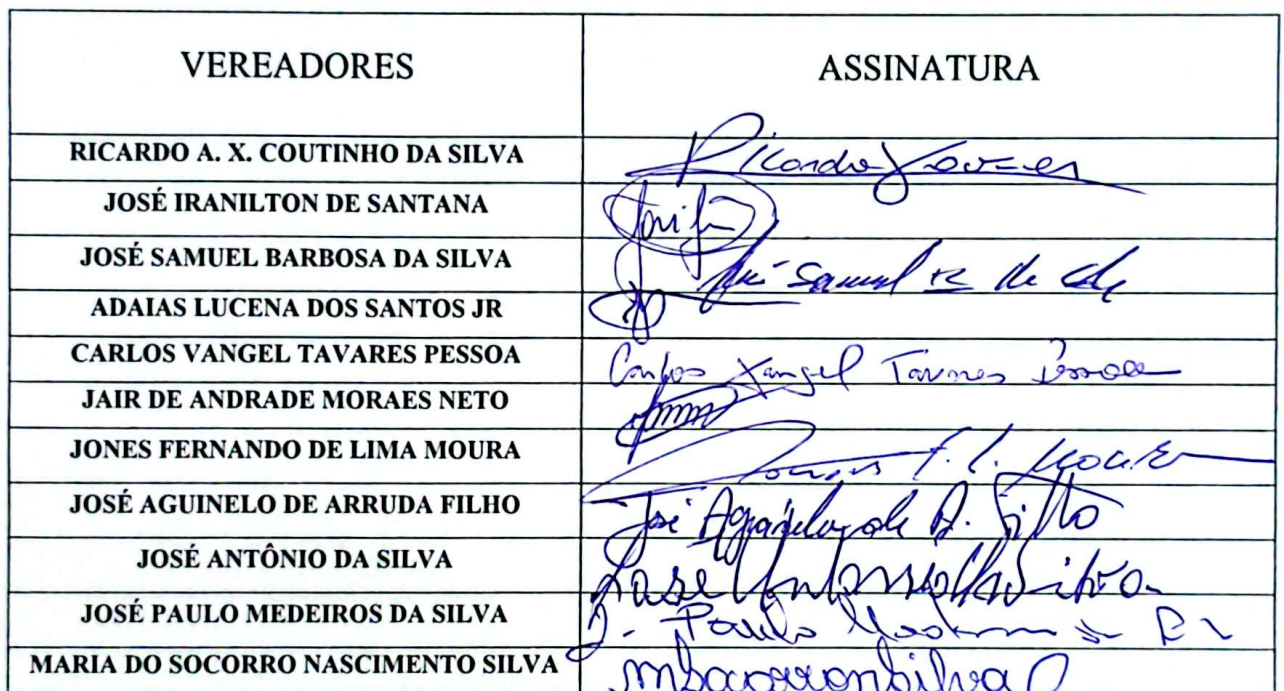 VEREADORES ASSINATURA
RICARDO A. X. COUTINHO DA SILVA Ricardo Xavier
JOSÉ IRANILTON DE SANTANA
JOSÉ SAMUEL BARBOSA DA SILVA José Samuel B da
ADAIAS LUCENA DOS SANTOS JR
CARLOS VANGEL TAVARES PESSOA Carlos Vangel Tavares Pessoa
JAIR DE ANDRADE MORAES NETO
JONES FERNANDO DE LIMA MOURA Jones F. L. Moura
JOSÉ AGUINELO DE ARRUDA FILHO José Aguinelo de A. Filho
JOSÉ ANTÔNIO DA SILVA Jose Antonio da Silva
JOSÉ PAULO MEDEIROS DA SILVA J. Paulo
MARIA DO SOCORRO NASCIMENTO SILVA mSocorronsilva